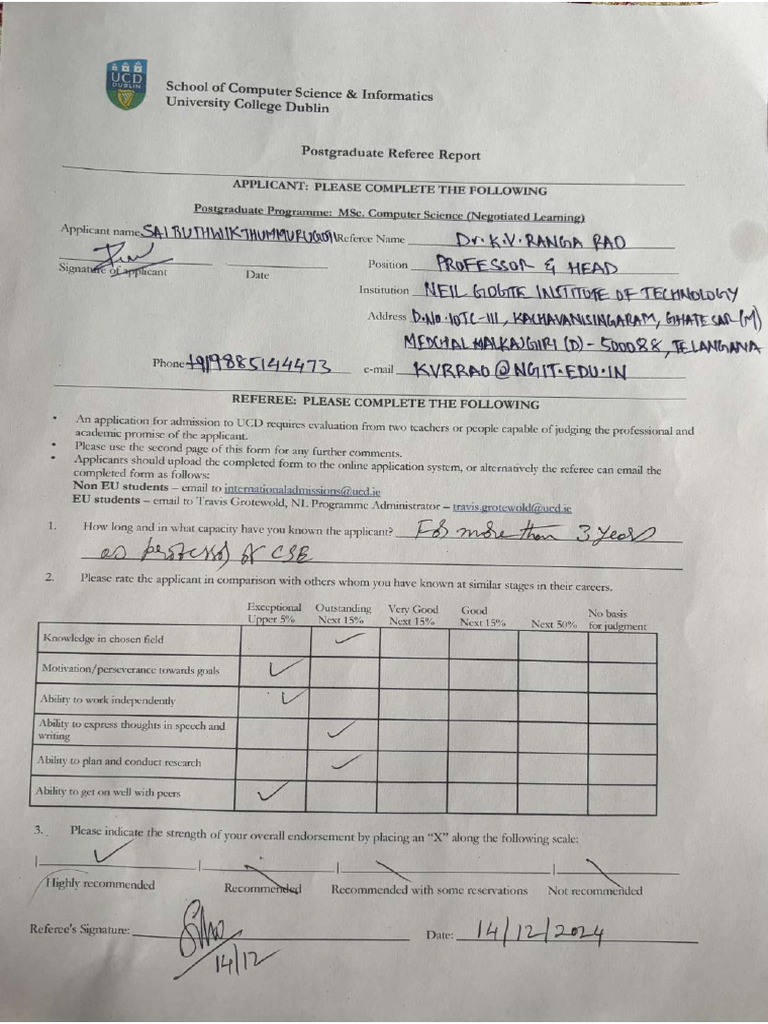 UCD
DUBLIN
School of Computer Science & Informatics
University College Dublin
Postgraduate Referee Report
APPLICANT: PLEASE COMPLETE THE FOLLOWING
Postgraduate Programme: MSc. Computer Science (Negotiated Learning)
Applicant name SAI RUTHWIK THUMMURUGOTI Referee Name Dr. K.V. RANGA RAO
Signature of applicant Date Position PROFESSOR & HEAD
Institution NEIL GOGTE INSTITUTE OF TECHNOLOGY
Address D.No. 10TC-III, KACHAVANISINGARAM, GHATESAR (M)
MEDCHAL MALKAJGIRI (D) - 500088, TELANGANA
Phone +919885144473 e-mail KVRRAO@NGIT.EDU.IN
REFEREE: PLEASE COMPLETE THE FOLLOWING
• An application for admission to UCD requires evaluation from two teachers or people capable of judging the professional and
academic promise of the applicant.
• Please use the second page of this form for any further comments.
• Applicants should upload the completed form to the online application system, or alternatively the referee can email the
completed form as follows:
Non EU students – email to internationaladmissions@ucd.ie
EU students – email to Travis Grotewold, NL Programme Administrator – travis.grotewold@ucd.ie
1. How long and in what capacity have you known the applicant? For more than 3 years
as professor of CSE
2. Please rate the applicant in comparison with others whom you have known at similar stages in their careers.
Exceptional Outstanding Very Good Good No basis
Upper 5% Next 15% Next 15% Next 15% Next 50% for judgment
Knowledge in chosen field ✓
Motivation/perseverance towards goals ✓
Ability to work independently ✓
Ability to express thoughts in speech and
writing ✓
Ability to plan and conduct research ✓
Ability to get on well with peers ✓
3. Please indicate the strength of your overall endorsement by placing an “X” along the following scale:
✓
Highly recommended Recommended Recommended with some reservations Not recommended
Referee's Signature: Date: 14/12/2024
14/12